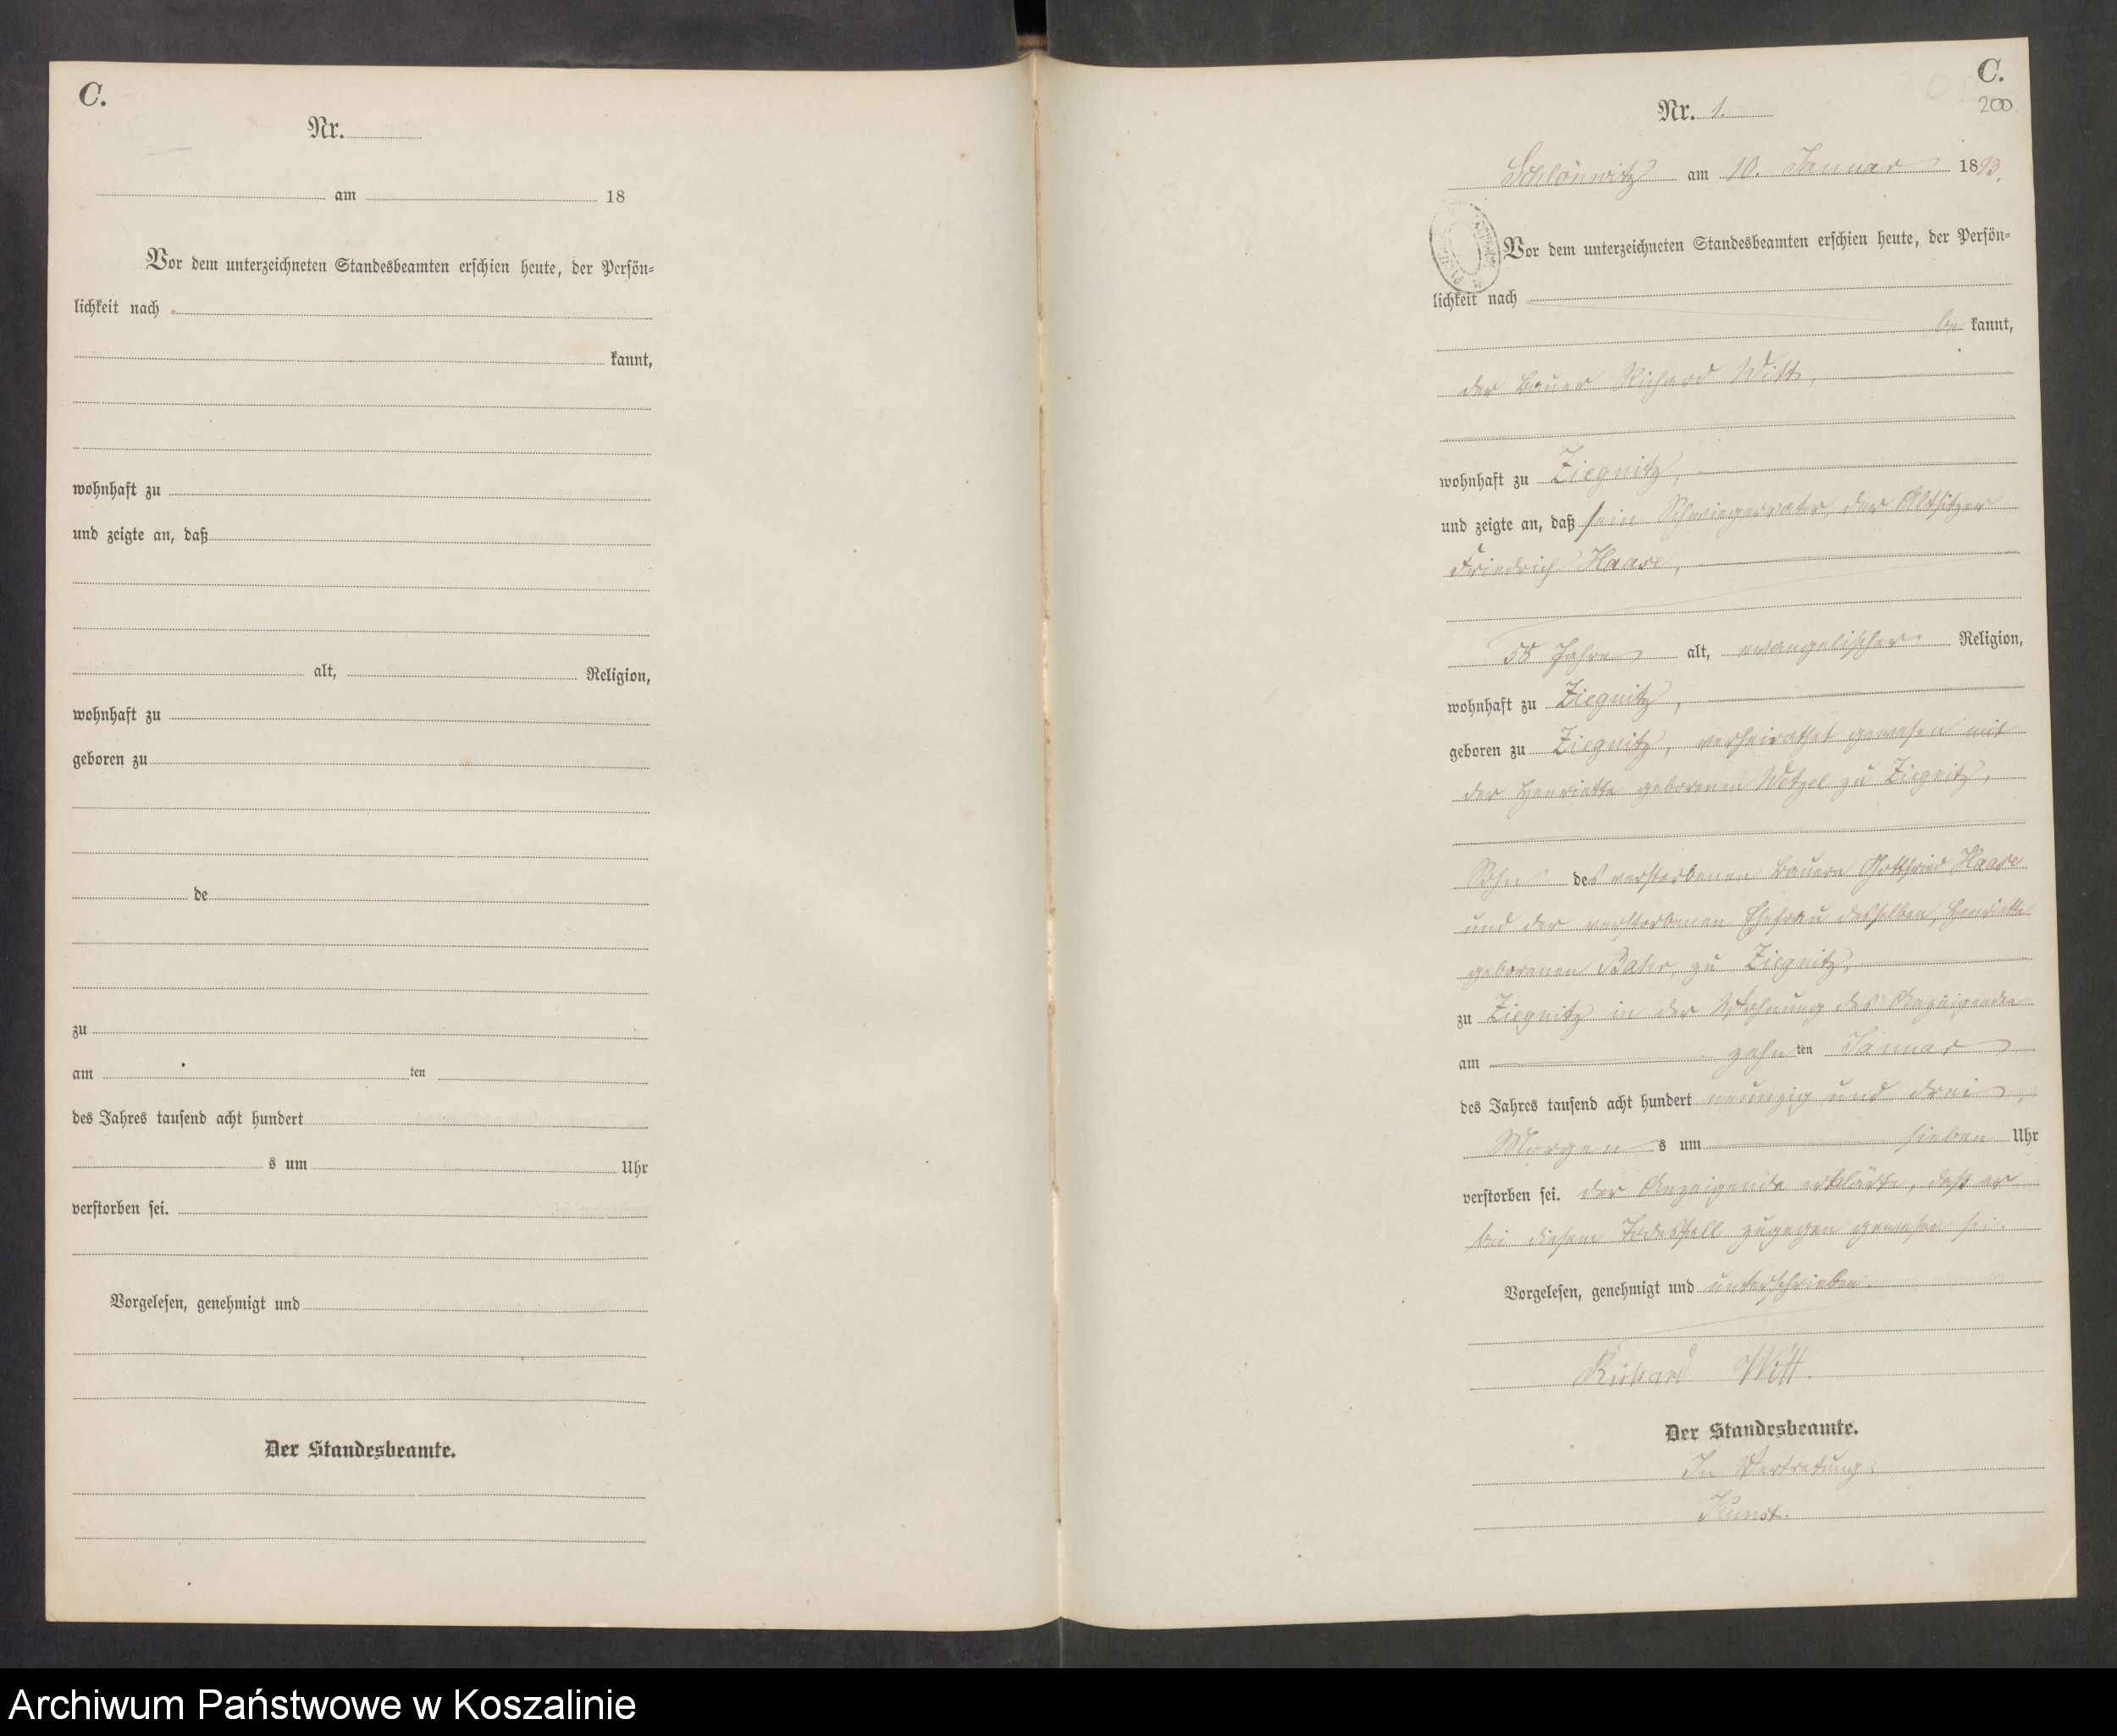 C.
Nr.
am 18
Vor dem unterzeichneten Standesbeamten erschien heute, der Persön-
lichkeit nach
kannt,
wohnhaft zu
und zeigte an, daß
alt, Religion,
wohnhaft zu
geboren zu
de
zu
am ten
des Jahres tausend acht hundert
s um Uhr
verstorben sei.
Vorgelesen, genehmigt und
Der Standesbeamte.
C.
200.
Nr. 1.
Schlönwitz am 10. Januar 1893.
Vor dem unterzeichneten Standesbeamten erschien heute, der Persön-
lichkeit nach
be kannt,
der Bauer Richard Witt,
wohnhaft zu Ziegnitz,
und zeigte an, daß sein Schwiegervater, der Altsitzer
Friedrich Haase,
55 Jahre alt, evangelischer Religion,
wohnhaft zu Ziegnitz,
geboren zu Ziegnitz, verheirathet gewesen mit
der Henriette geborenen Wetzel zu Ziegnitz,
Sohn des verstorbenen Bauern Gottfried Haase
und der verstorbenen Ehefrau desselben, Henriette
geborenen zu Ziegnitz,
zu Ziegnitz in der Wohnung des Anzeigenden
am zehn ten Januar
des Jahres tausend acht hundert neunzig und drei,
Morgen s um sieben Uhr
verstorben sei. der Anzeigende erklärte, daß er
bei diesem Todesfall zugegen gewesen sei.
Vorgelesen, genehmigt und unterschrieben.
Richard Witt.
Der Standesbeamte.
In Vertretung.
Kunst.
Archiwum Państwowe w Koszalinie